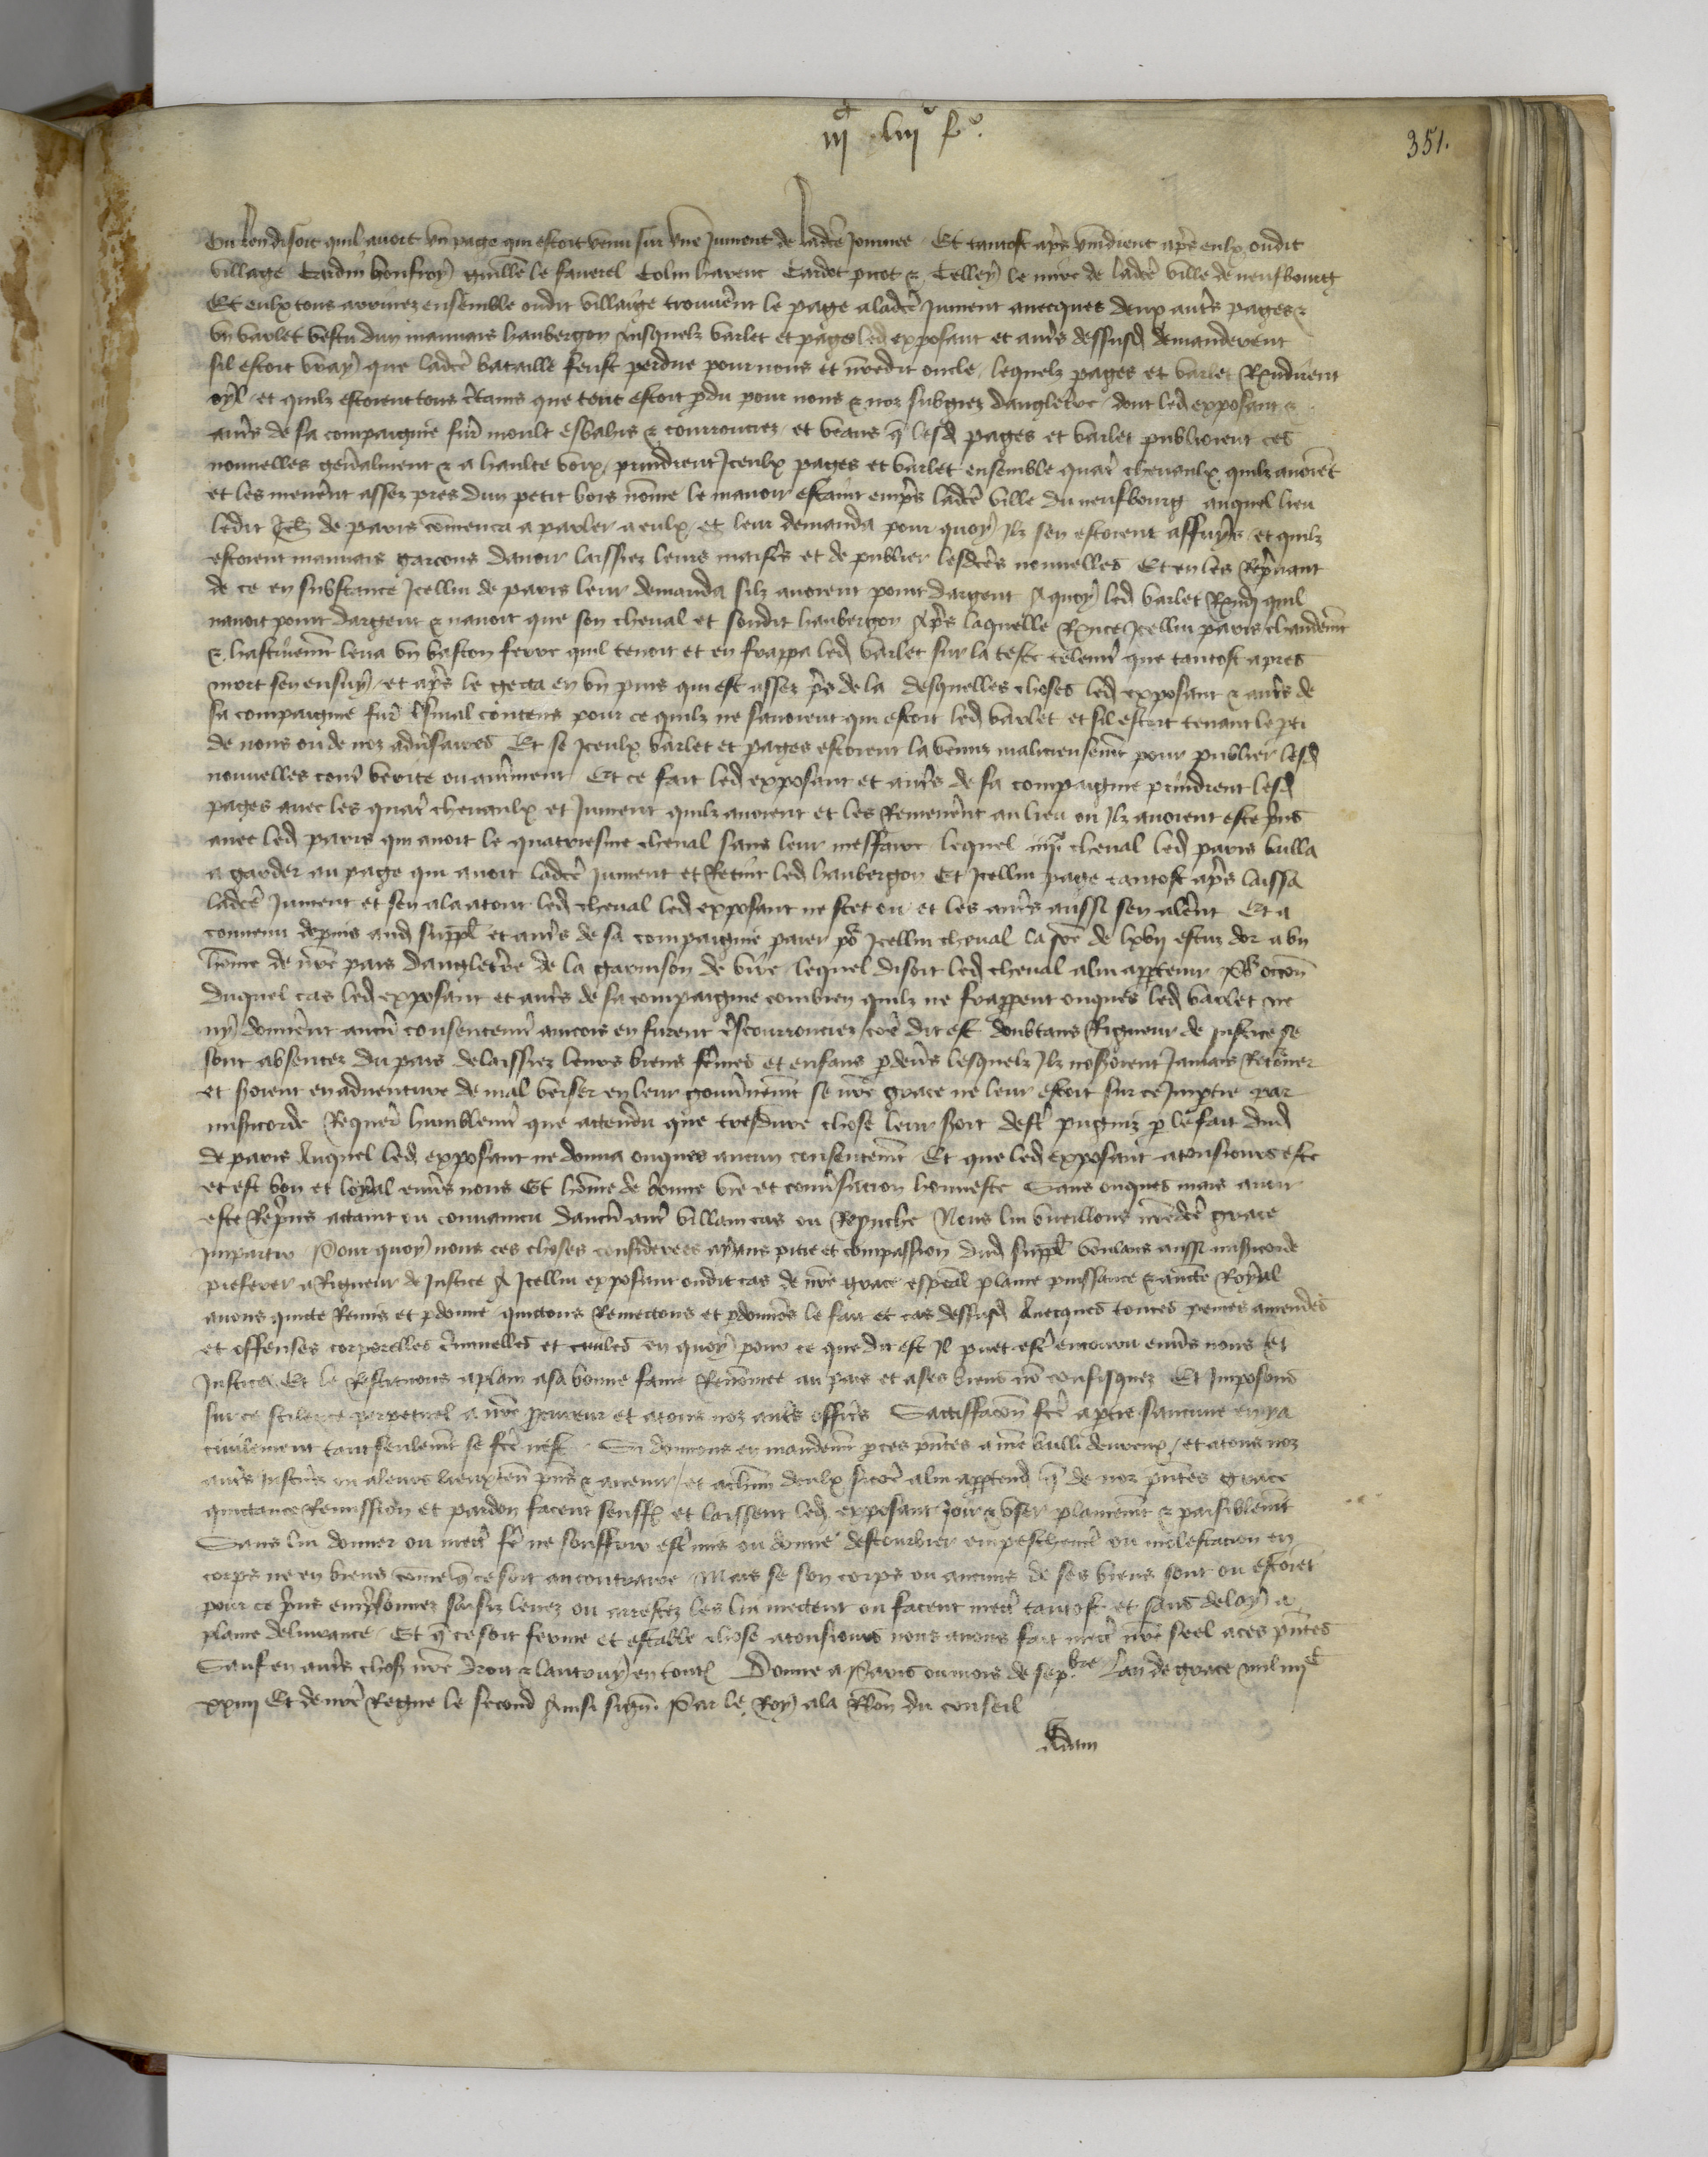 iiiᶜ liiiᵉ fᵒ.
351.
On len disoit quil avoit un page qui estoit venu sur une Jument de ladcē Journee Et tantost ap̃s vindrent ap̃s eulx oudit
village Cardin bonfroy guillē le faverel Colin harent Cardot picot & Celley le mire de ladcē ville de neufbourg
Et eulx tous arrivez ensemble oudit villaige trouvēnt le page a ladcē Jument avecques deux autēs pages &
un varlet vestu dun mauvais haubergon Ausquelz varlet et pages led exposant et autēs dessusd demanderent
sil estoit vray que ladcē bataille feust perdue pour nous et nr̃edit oncle lequelz pages et varlet Rendirent
oyl et quilz estoient tous c̃tains que tout estoit p̃du pour nous & noz subgiez dangletēre dont led exposant &
autēs de sa compaignie furēt moult esbahis & courrouciez et veans q̃ lesd pages et varlet publioient ces
nouvelles gen̄alment & a haulte voix prindrent Iceulx pages et varlet ensemble quatē chevaulx quilz avoiēt
et les menēnt assez pres dun petit bois nōme le manoir estant emp̃s ladcē ville du neufbourg auquel lieu
ledit Jeħ de paris cōmenca a parler a eulx et leur demanda pour quoy Ilz sen estoient affuyz et quilz
estoient mauvais garcons davoir laissiez leurs maistēs et de publier lesdcēs nouvelles Et en les Rep̃nant
de ce en substance Icellui de paris leur demanda silz avoient point dargent A quoy led varlet Rn̄di quil
navoit point dargent & navoit que son cheval et sondit haubergon Ap̃s laquelle Rn̄ce Icellui paris chaudemt̄
& hastivemt̄ leva un baston ferre quil tenoit et en frappa led varlet sur la teste telemt̄ que tantost apres
mort sen ensuy et ap̃s le getta en un puis qui est assez p̃s de la desquelles choses led exposant & autēs de
sa compaignie furēt tr̃smal contens pour ce quilz ne savoient qui estoit led varlet et sil estoit tenant le p̃ti
de nous ou de noz adv̄saires Et se Iceulx varlet et pages estoient la venuz malicieusemt̄ pour publier lesd
nouvelles com̄ verite ou autēment Et ce fait led exposant et autēs de sa compaignie prindrent lesd
pages avec les quatē chevaulx et Jument quilz avoient et les Remenēnt au lieu ou Ilz avoient este p̃ns
avec led paris qui avoit le quatriesme cheval sans leur meffaire lequel iiiiᵉ cheval led paris bailla
a garder au page qui avoit ladcē Jument et Retint led haubergon Et Icellui page tantost ap̃s laissa
ladcē Jument et sen ala atout led cheval led exposant ne scet ou et les autēs aussi sen alēnt Et a
convenu depuis aud supp̄l et autēs de sa compaignie paier po᷑ Icellui cheval la sōe de lxvij escuz dor a un
hōme de nr̃e pais dangletēre de la garnison de vire lequel disoit led cheval a lui appetenir Po᷑ occōn
duquel cas led exposant et autēs de sa compaignie combien quilz ne frappent onques led varlet ne
ny donnēnt aucū consentemt̄ aincois en furent tr̃scourrouciez cōe dit est doubtans Rigueur de Justice se
sont absentez du pais delaissiez leurs biens fēmes et enfans p̃ devs̄ lesquelz Ilz noseroient Jamais Retōner
et seroient en adventure de mal verser en leur gouv̄nemt̄ se nr̃e grace ne leur estoit sur ce Imp̃tie par
mis̄icorde Requer̄ humblemt̄ que attendu que tresdure chose leur seroit destr̃ pugniz p̃ le fait dud
de paris Auquel led exposant ne donna onques aucun consentemt̄ Et que led exposant a tousiours este
et est bon et loyal envs̄ nous Et hōme de bonne vie et conv̄sacion honneste Sans onques mais avoir
este Rep̃ns attaint ou convaincu daucū autr̃ villain cas ou Reprouche Nous lui vueillons nr̃edcē grace
Impartir Pour quoy nous ces choses considerees ayans pitie et compassion dud supp̄l voulans aussi mis̄icorde
preferer a Rigueur de Justice A Icellui exposant oudit cas de nr̃e grace esp̄cal plaine puissance & aucte Royal
avons quicte Remis et p̃donne quictons Remectons et p̃donnōs le fait et cas dessusd Avecques toutes peines amendes
et offenses corporelles c̃minelles et civiles en quoy pour ce que dit est Il puet estr̃ encouru envs̄ nous et
Justice Et le Restituons a plain a sa bonne fame Renōmee au pais et a ses biens nō confisquez Et Imposons
sur ce scilence perpetuel a nr̃e procureur et a tous noz autēs offic̃s Sattisfacōn fcē a p̃tie saucune en y a
civilement tant seulemt̄ se fcē nest Si donnons en mandemt̄ p̃ ces pn̄tes a nr̃e bailli devreux et a tous noz
autēs Justic̃s ou a leurs lieuxten̄ pn̄s & avenir et a chūn deulx si cōe a lui apptend q̃ de noz pn̄tes grace
quictance Remission et pardon facent seuff et laissent led exposant Joir & user plainemt̄ & paisiblemt̄
Sans lui donner ou mectr̃ fē ne souffrir estr̃ mis ou donne destourbier empeschemt̄ ou molestacion en
corps ne en biens cōme q̃ ce soit au contraire Mais se son corps ou aucuns de ses biens sont ou estoiēt
pour ce p̃ns emp̃sonnez saisiz levez ou arrestez les lui mectent ou facent mectr̃ tantost et sans deloy a
plaine delivrance Et q̃ ce soit ferme et estable chose a tousiours nous avons fait mectr̃ nr̃e seel a ces pn̄tes
Sauf en autēs chos nr̃e droit & lautruy en tout Donne a Paris ou mois de sepᵇʳᵉ Lan de grace mil iiiiᶜ
xxiiii Et de nr̃e Regne le second Ainsi sign̄ Par le Roy a la Rlōn du conseil
Adam